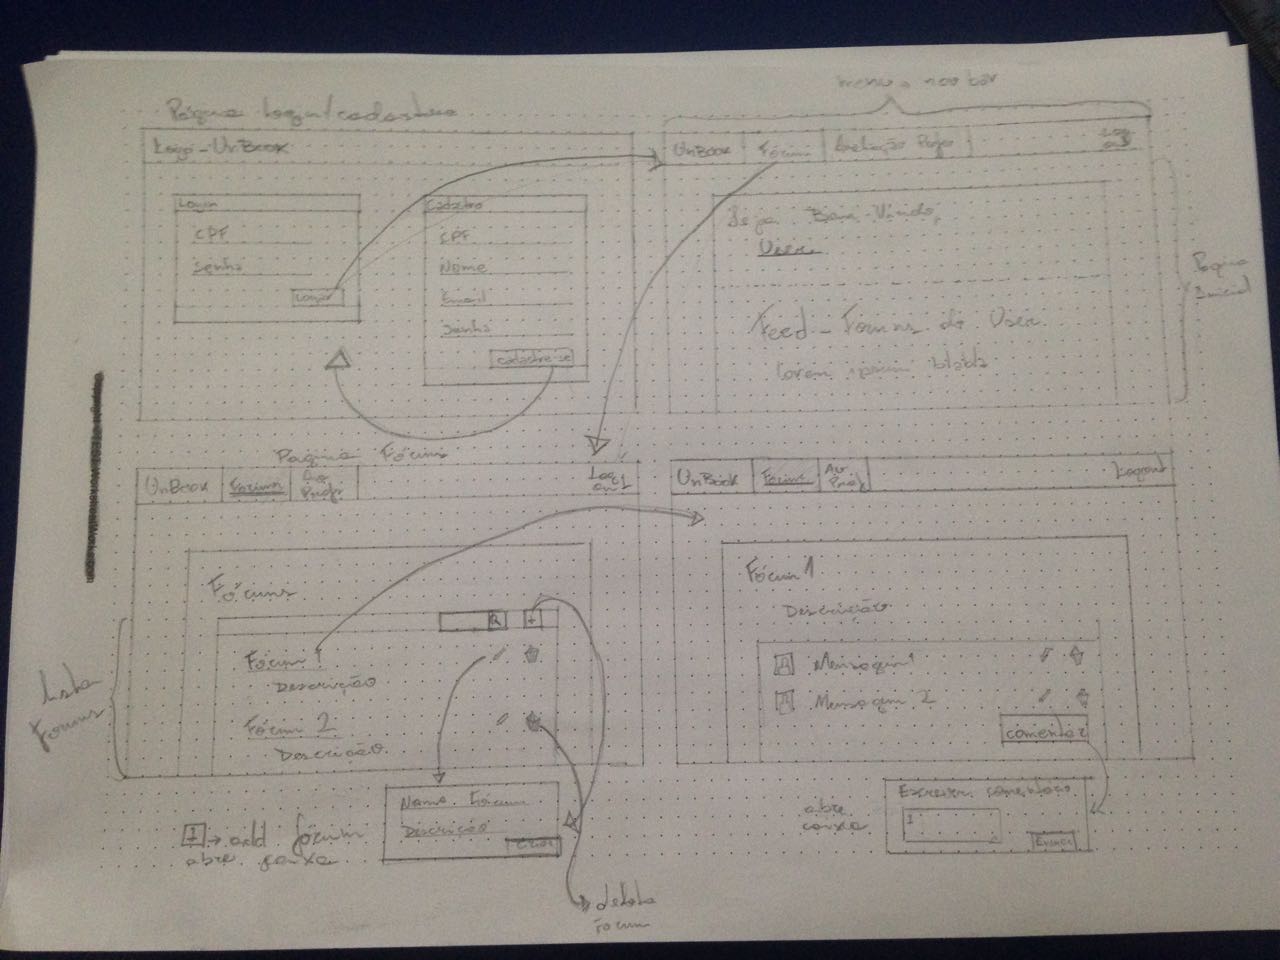 Página Login/cadastro
menu navbar
Logo - UnBook
Login
CPF
Senha
Login
Cadastro
CPF
Nome
Email
Senha
cadastre-se
UnBook Fórum Avaliação Profs
Seja Bem-Vindo,
User
Feed - Foruns do User
lorem ipsum blabla
Pagina
Inicial
Pagina Fórum
UnBook Foruns
Logout
Fóruns
Fórum 1
Descrição
Fórum 2
Descrição
lista
Foruns
Nome Fórum
Descrição
→ add fórum
abre caixa
deleta
Fórum
UnBook Foruns Av Prof
Logout
Fórum 1
Descrição
Mensagem 1
Mensagem 2
comentar
abre
caixa
Escrever comentário
Enviar